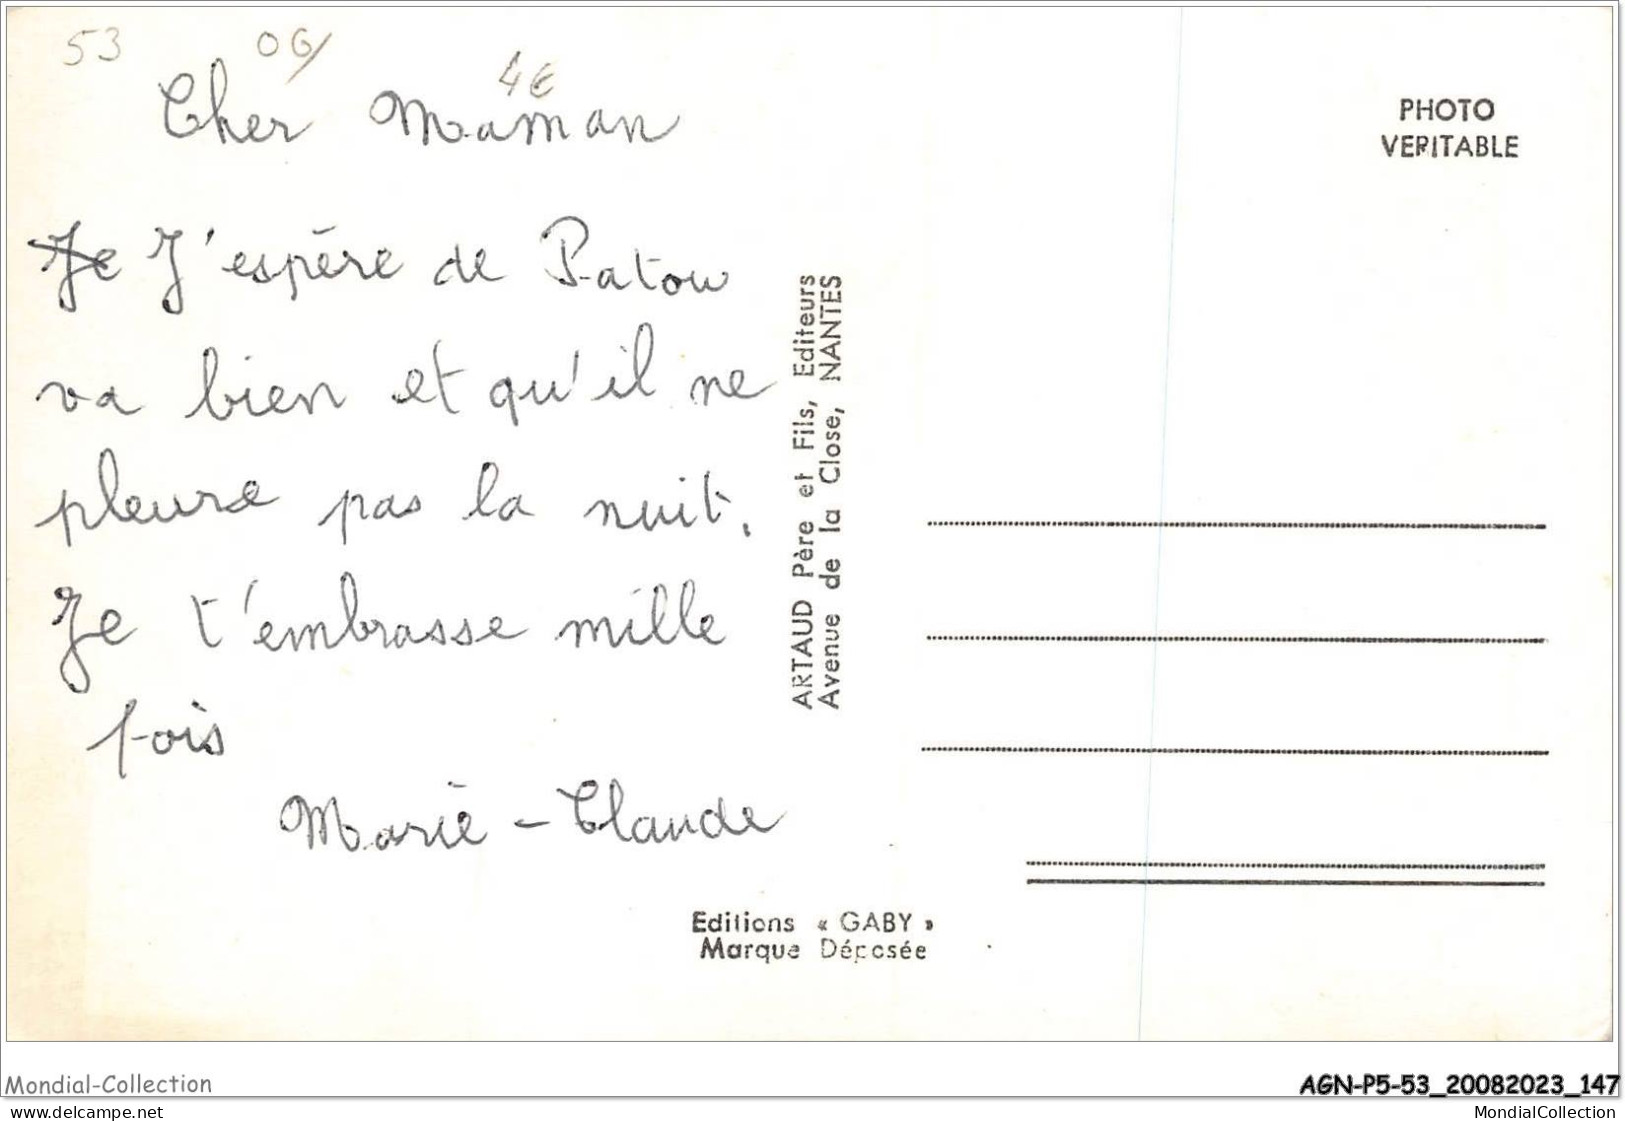 53 06/ 4€
Cher Maman
Je J'espère de Patou
va bien et qu'il ne
pleure pas la nuit.
Je t'embrasse mille
fois
Marie-Claude
ARTAUD Père et Fils, Editeurs
Avenue de la Close, NANTES
PHOTO
VERITABLE
Editions « GABY »
Marque Déposée
Mondial-Collection
AGN-P5-53_20082023_147
www.delcampe.net
MondialCollection